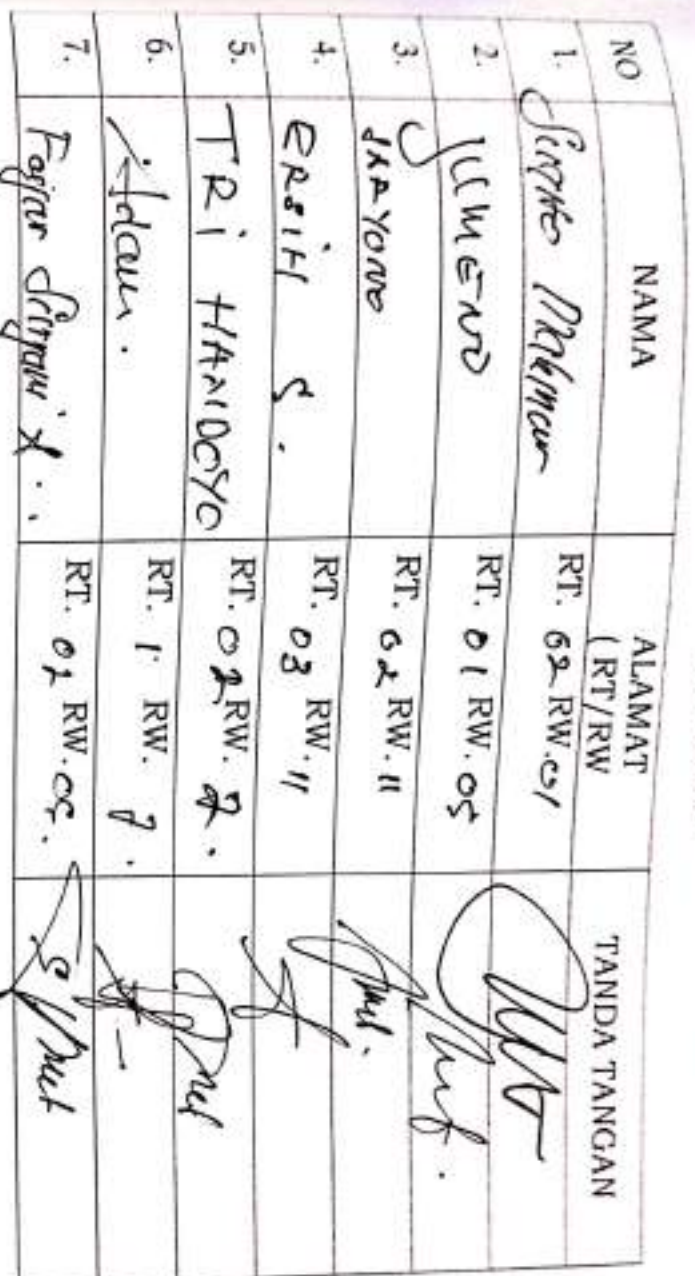 NO NAMA ALAMAT ( RT/RW TANDA TANGAN
1. RT. 02 RW. 01
2. JUMENO RT. 01 RW. 05
3. SARYONO RT. 02 RW. 11
4. ERSIH S. RT. 03 RW. 11
5. TRI HANDOYO RT. 02 RW. 7.
6. Adam. RT. 1 RW. 7.
7. Fajar RT. 02 RW. 05.